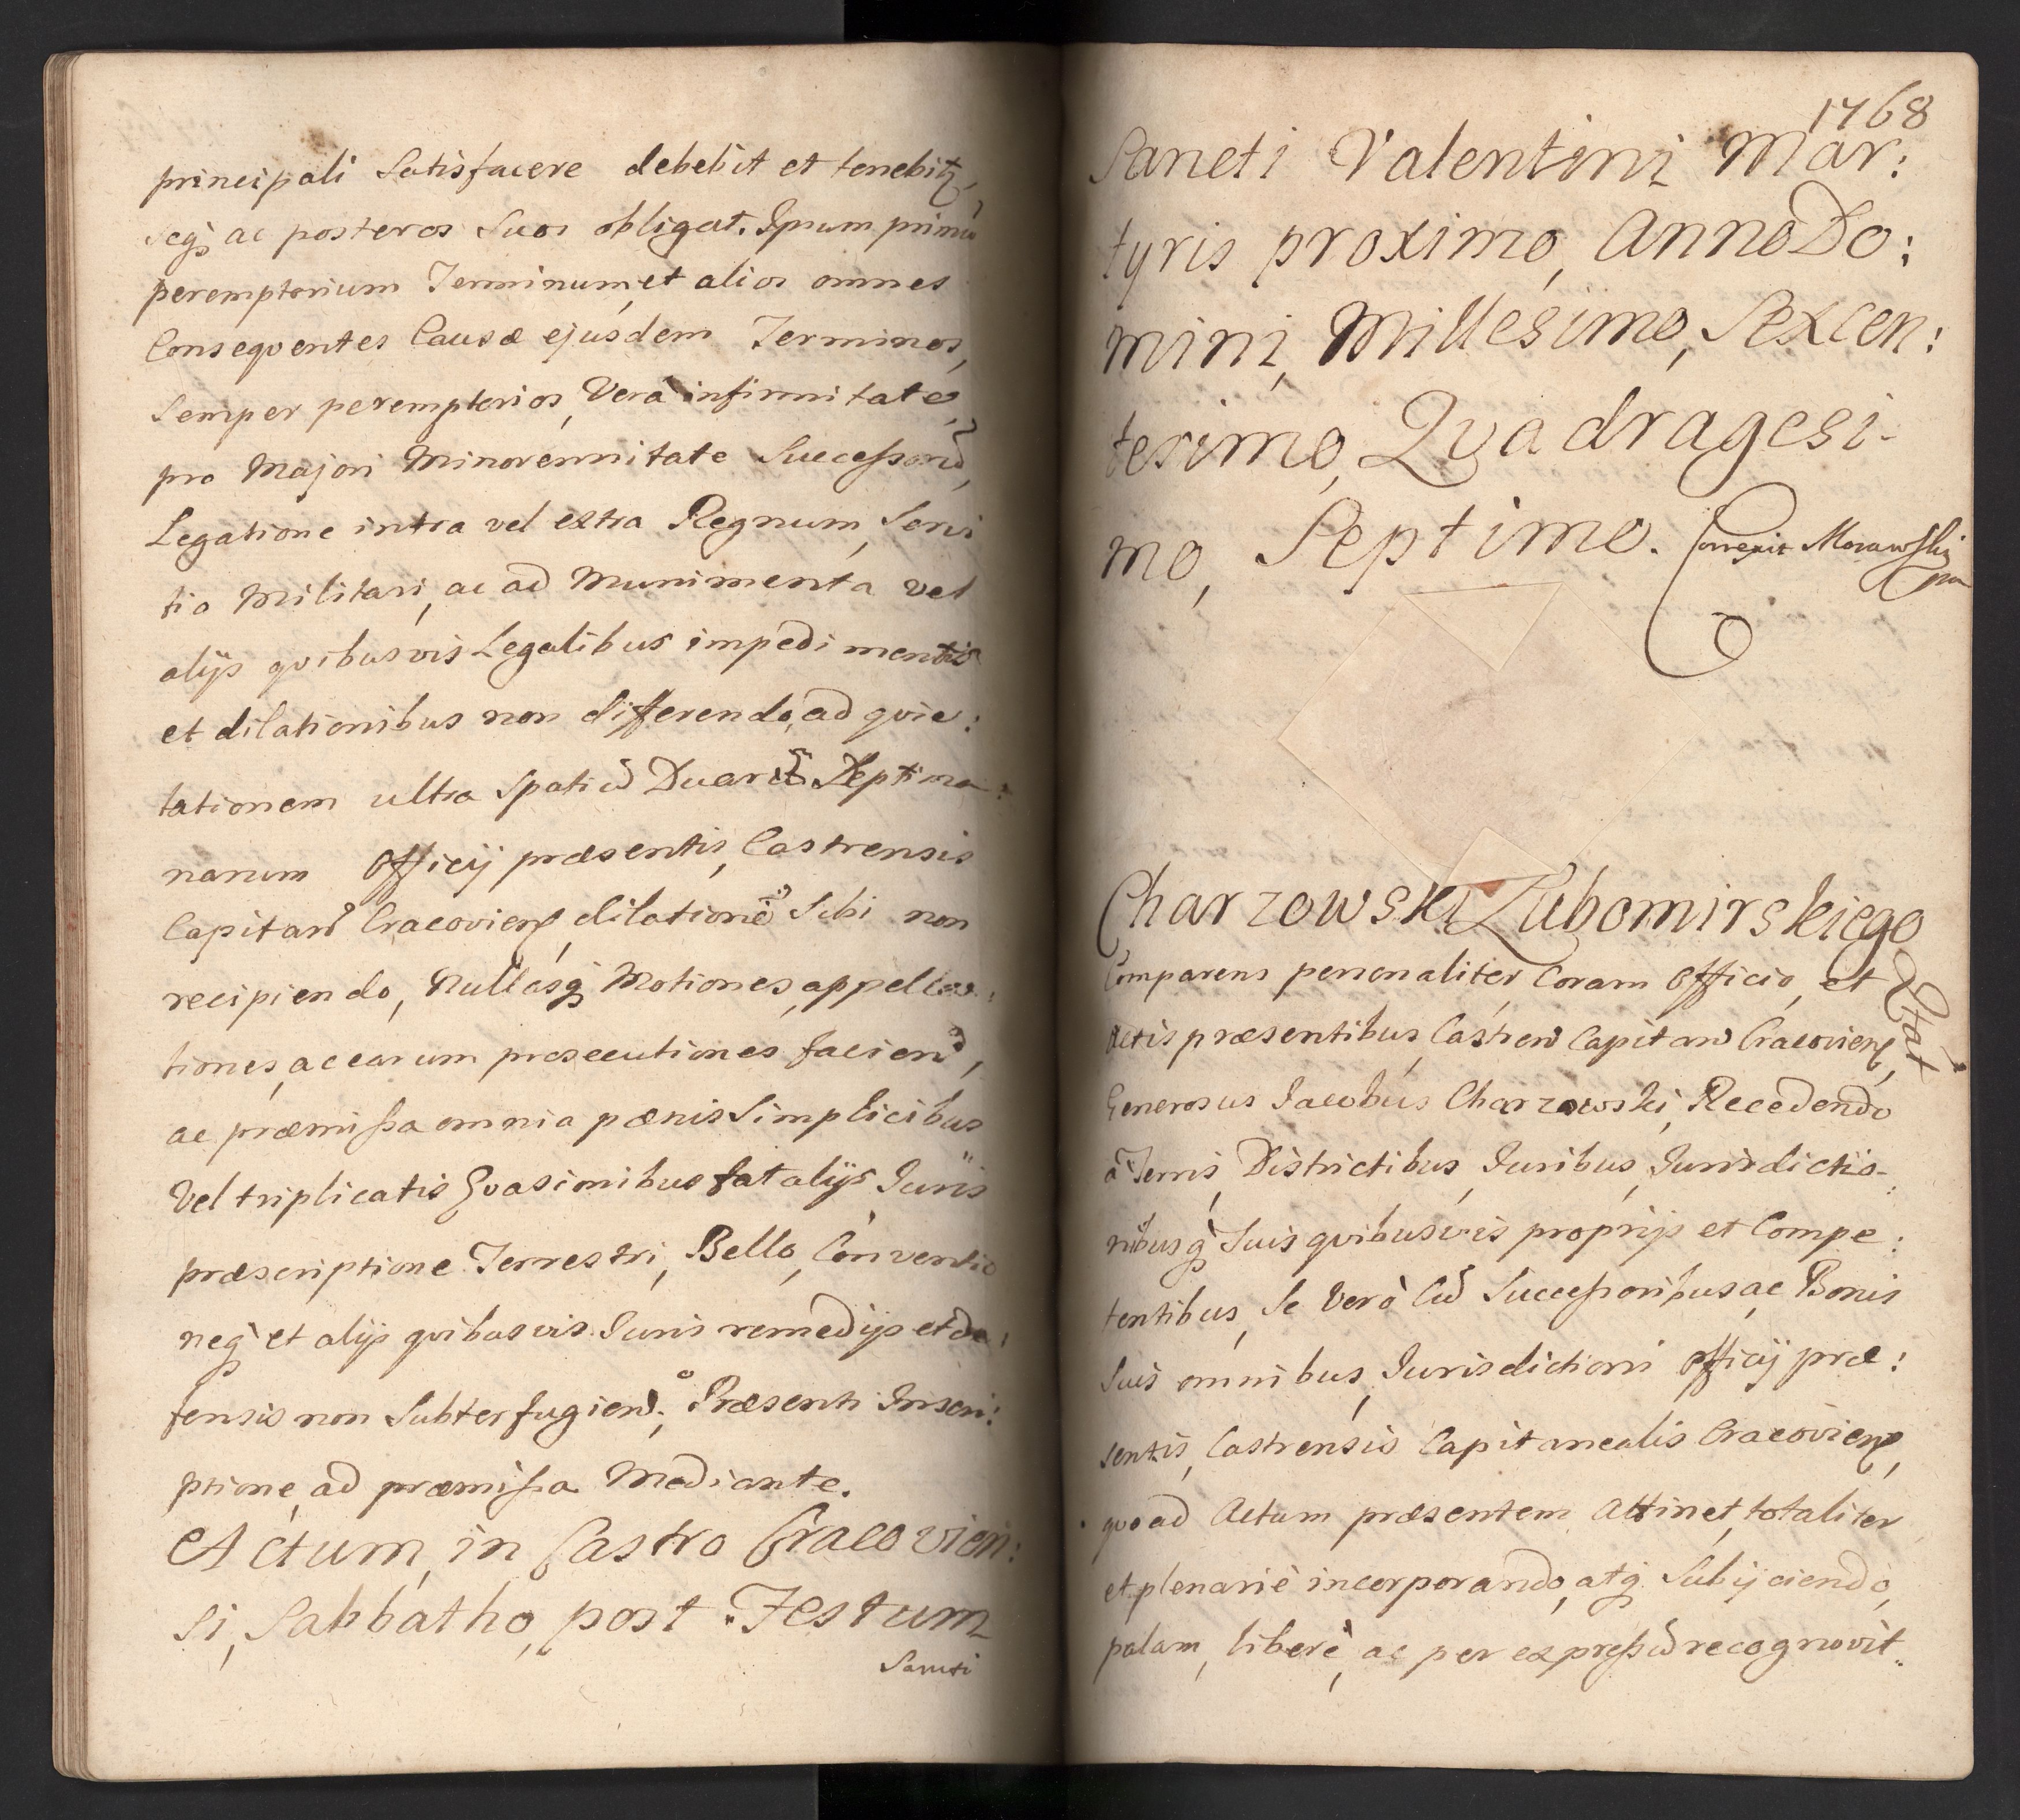 principali Satisfacere debebit et tenebitz,
seqz ac posteros Suos obligat. Ipsum primū
peremptorium Terminum, et alios omnes
Conseqventes Causæ ejusdem Terminos,
Semper peremptorios, Verà infirmitate,
pro Majori Minorennitate Successorū,
Legatione intra vel extra Regnum, Servi
tio Militari, ac ad Munimenta vel
alijs qvibusvis Legalibus impedimentis
et dilationibus non differendo, ad qvie:
tationem ultra Spatiū Duarū Septima:
narum Officij præsentis, Castrensis
Capitan Cracovien, dilationē Sibi non
recipiendo, Nullasqz Motiones, appella:
tiones, ac earum prosecutiones faciendo,
ac præmissa omnia pænis Simplicibus
Vel triplicatis Evasionibus fatalijs Juris
præscriptione Terrestri, Bello, Conventio
neqz et alijs qvibusvis Juris remedijs et de:
fensis non Subterfugiendo; Præsenti Inscri:
ptione, ad præmissa Mediante.
Actum, in Castro Cracovien:
si, Sabbatho, post Festum
Sancti
1768
Sancti Valentini Mar:
tyris proximo, Anno Do:
mini, Millesimo, Sexcen:
tesimo, Qvadragesi-
mo, Septimo. Correxit Morawski
mp
Charzowski Lubomirskiego
Qtat
Comparens personaliter Coram Officio, et
Actis præsentibus, Castren Capitan Cracovien,
Generosus Jacobus Charzowski, Recedendo
à Terris, Districtibus, Juribus, Jurisdictio-
nibusqz Suis qvibusvis proprijs et Compe:
tentibus, Se Verò Cū Successoribus ac Bonis
Suis omnibus, Jurisdictioni Officij præ:
sentis, Castrensis Capitanealis Cracovien,
qvoad Actum præsentem Attinet, totaliter
et plenariè incorporando, atqz Subijciendo,
palam, liberè, ac per expressū recognovit.